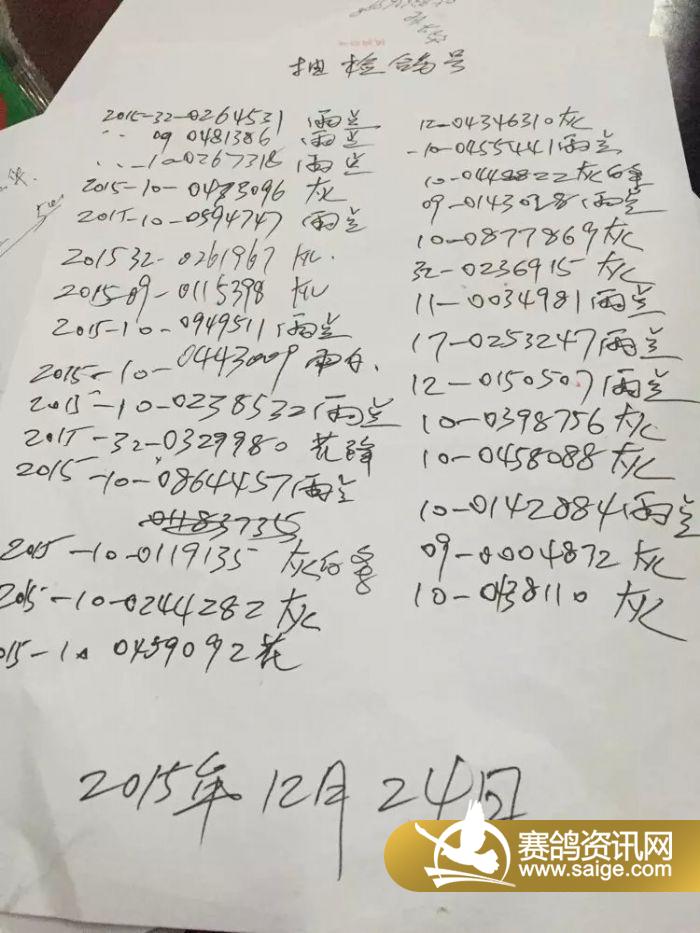 抽检鸽号
2015-32-0264531 雨兰
‥ 09 0481386 雨兰
‥-10-0267318 雨兰
2015-10-0483096 灰
2015-10-0594747 雨兰
2015 32-0261967 灰
2015-09-0115398 灰
2015-10-0949511 雨兰
2015-10-0443009 雨白
2015-10-0238532 雨兰
2015-32-0329980 花
2015-10-0864457 雨兰
2015-10-0119135 灰白
2015-10-0244282 灰
015-10 0459092 花
12-04346310 灰
-10-0455441 雨兰
灰白
09-0143028 雨兰
10-0877869 灰
32-0236915 灰
11-0034981 雨兰
17-0253247 雨兰
12-0150507 雨兰
10-0398756 灰
10-0458088 灰
10-0142884 雨兰
09-0004872 灰
灰
2015年12月24日
赛鸽资讯网
www.saige.com